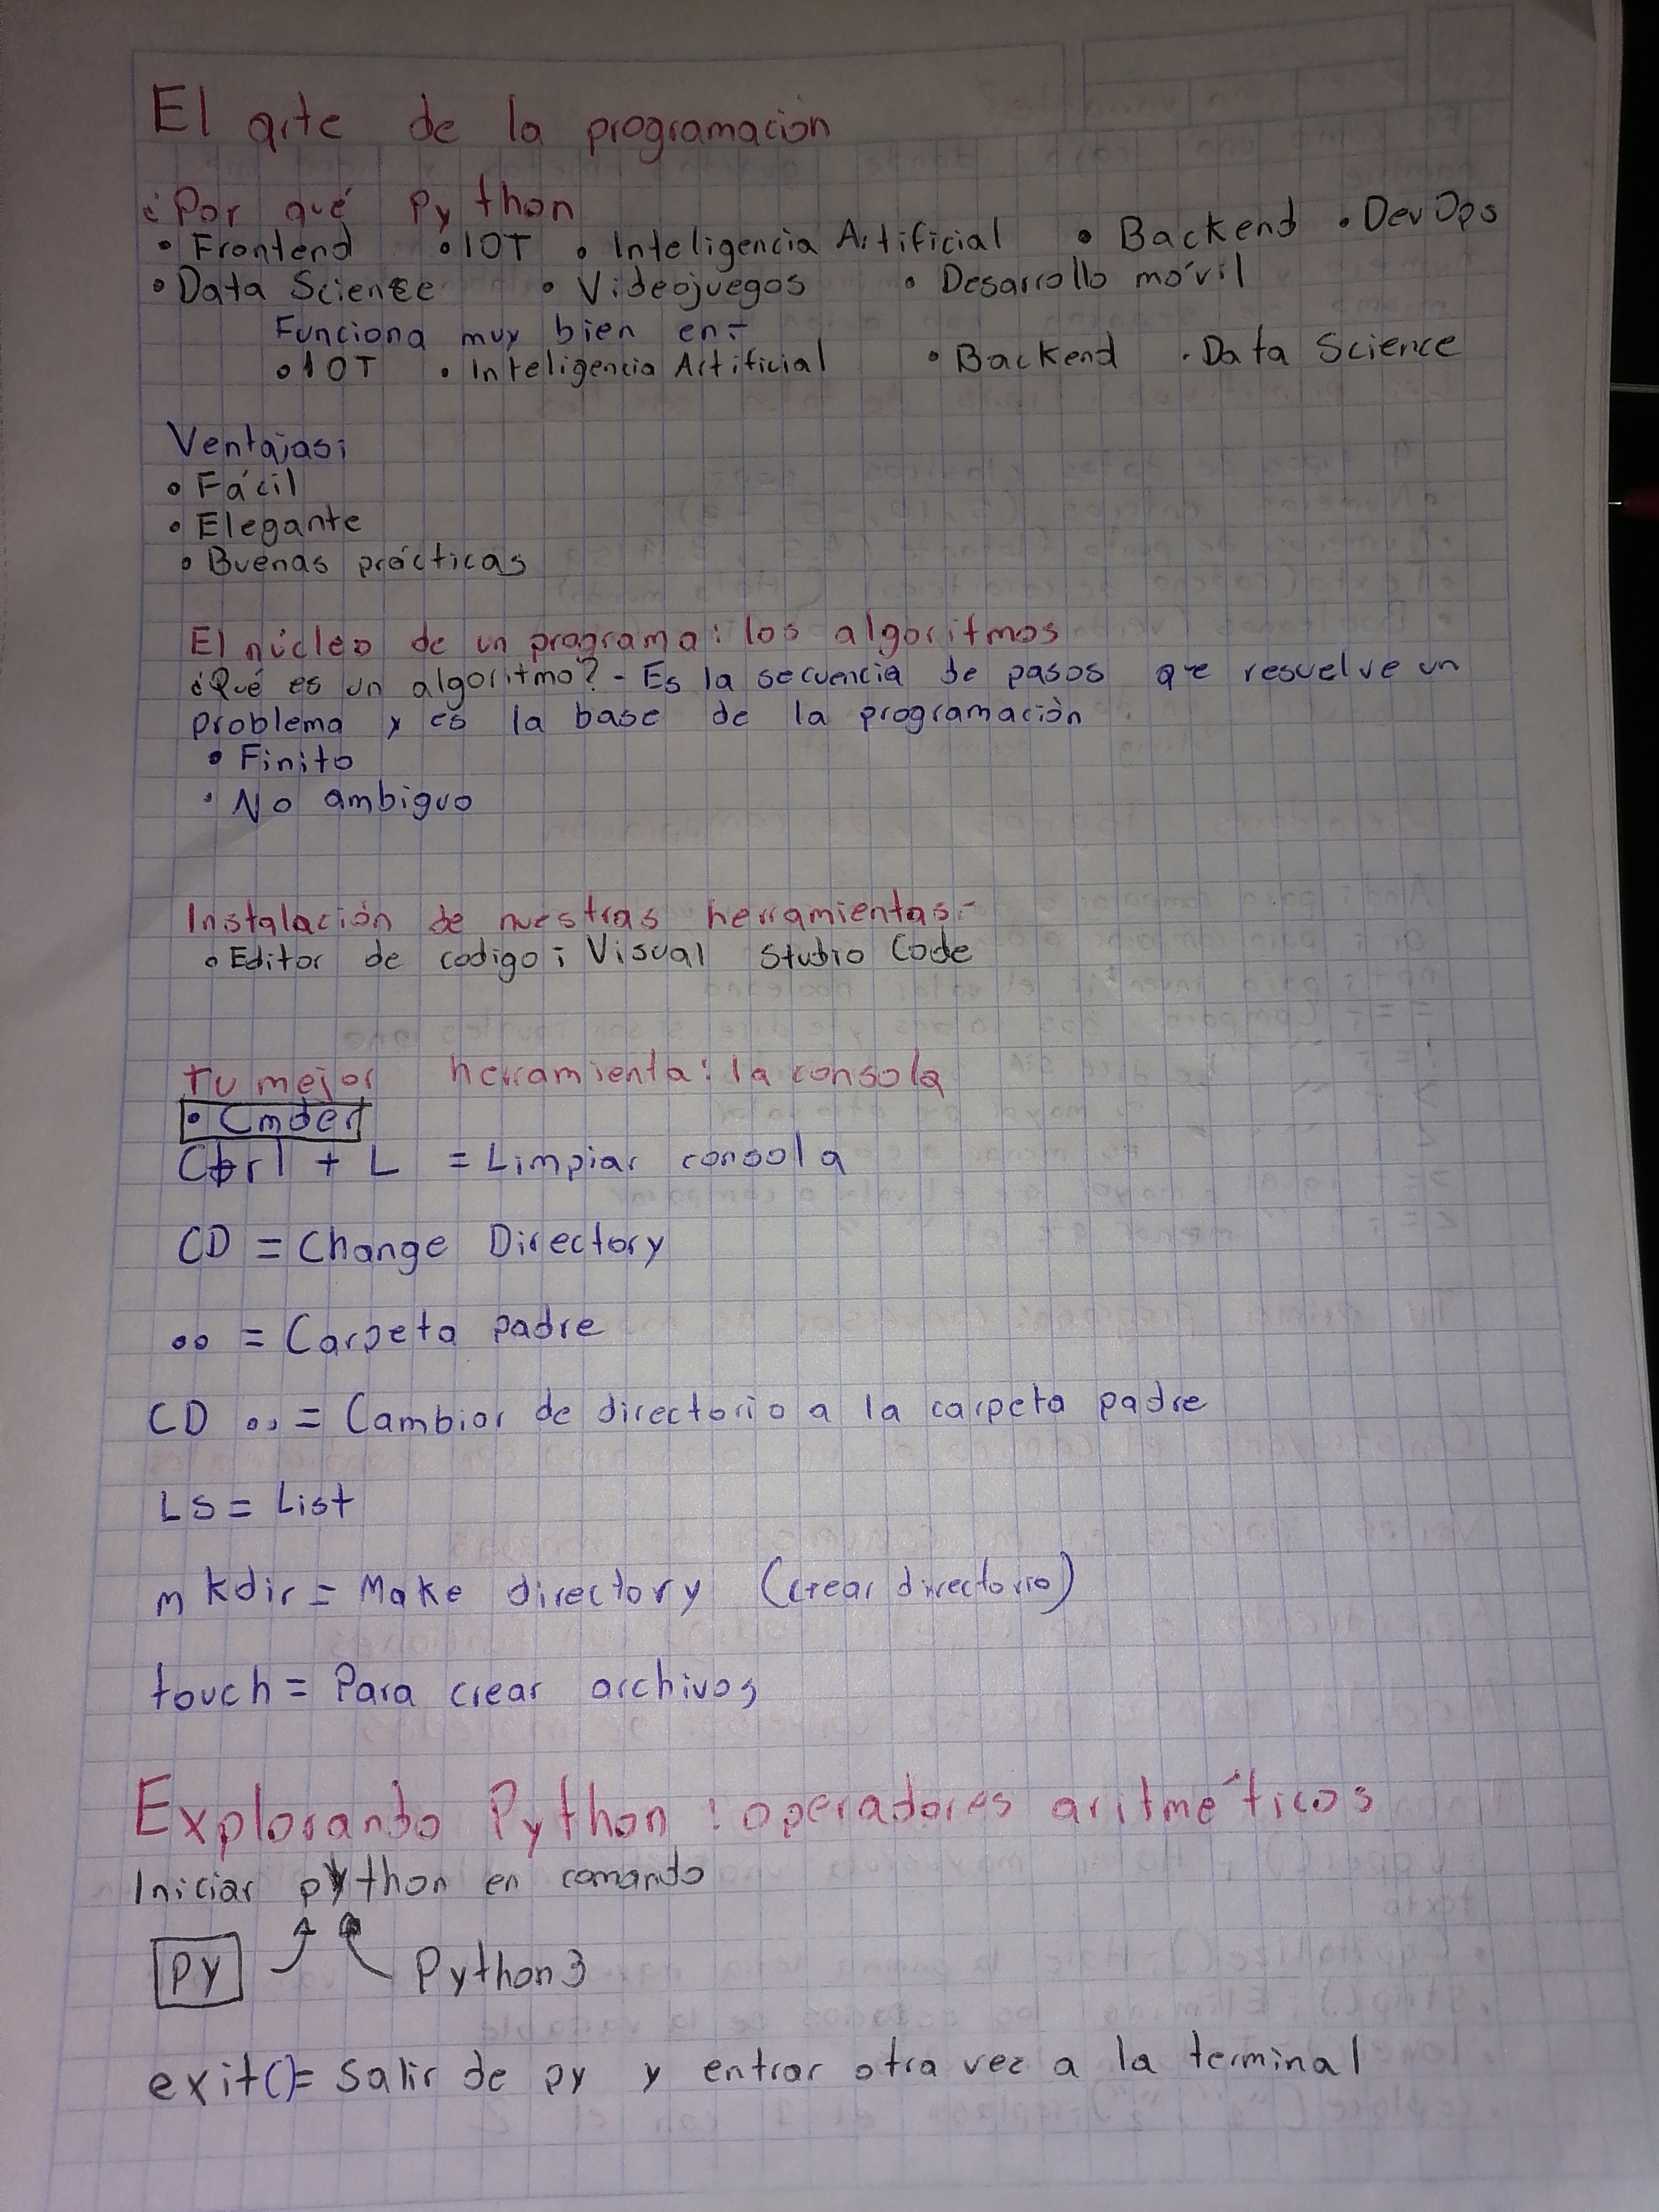 El arte de la programación
¿Por qué Python
• Frontend • IOT • Inteligencia Artificial • Backend • DevOps
• Data Science • Videojuegos • Desarrollo móvil
Funciona muy bien en:-
• IOT • Inteligencia Artificial • Backend • Data Science
Ventajas:
• Fácil
• Elegante
• Buenas prácticas
El núcleo de un programa: los algoritmos
¿Qué es un algoritmo? - Es la secuencia de pasos que resuelve un
problema y es la base de la programación
• Finito
• No ambiguo
Instalación de nuestras herramientas:-
• Editor de codigo: Visual Studio Code
Tu mejor herramienta: la consola
• Cmder
Ctrl + L = Limpiar consola
CD = Change Directory
.. = Carpeta padre
CD .. = Cambiar de directorio a la carpeta padre
LS = List
mkdir = Make directory (crear directorio)
touch = Para crear archivos
Explorando Python: operadores aritméticos
Iniciar python en comando
py Python3
exit()= salir de py y entrar otra vez a la terminal